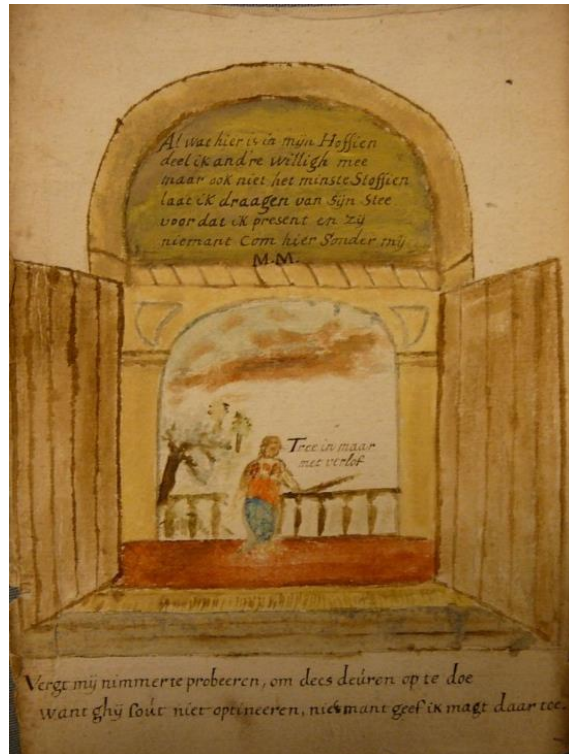 Al wat hier is in mijn Hoffien
deel ik andre willigh mee
maar ook niet het minste Stoffien
laat ik draagen van Sijn Stee
voor dat ik present en zij
niemant Com hier Sonder mij
M.M.
Tree in maar
met verlof
Vergt mij nimmer te probeeren, om dees deúren op te doe
want ghij soút niet optineeren, niemant geef ik magt daar toe.